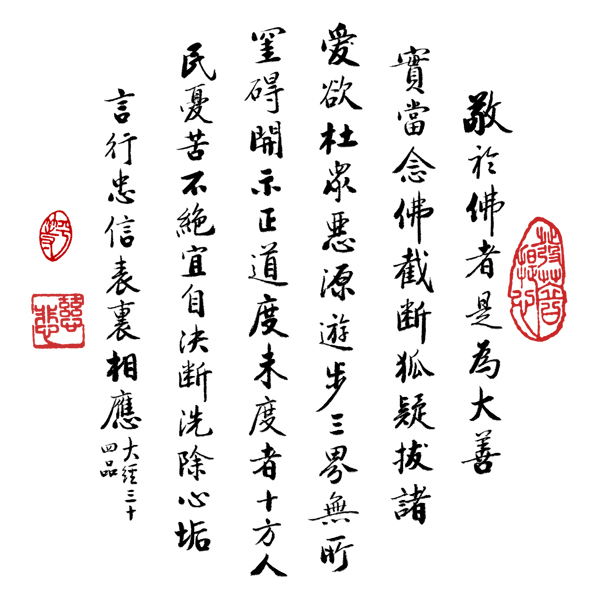 敬於佛者是為大善
實當念佛截斷狐疑拔諸
愛欲杜衆惡源遊步三界無所
罣礙開示正道度未度者十方人
民憂苦不絕宜自決斷洗除心垢
言行忠信表裏相應
大經三十
四品
慈悲